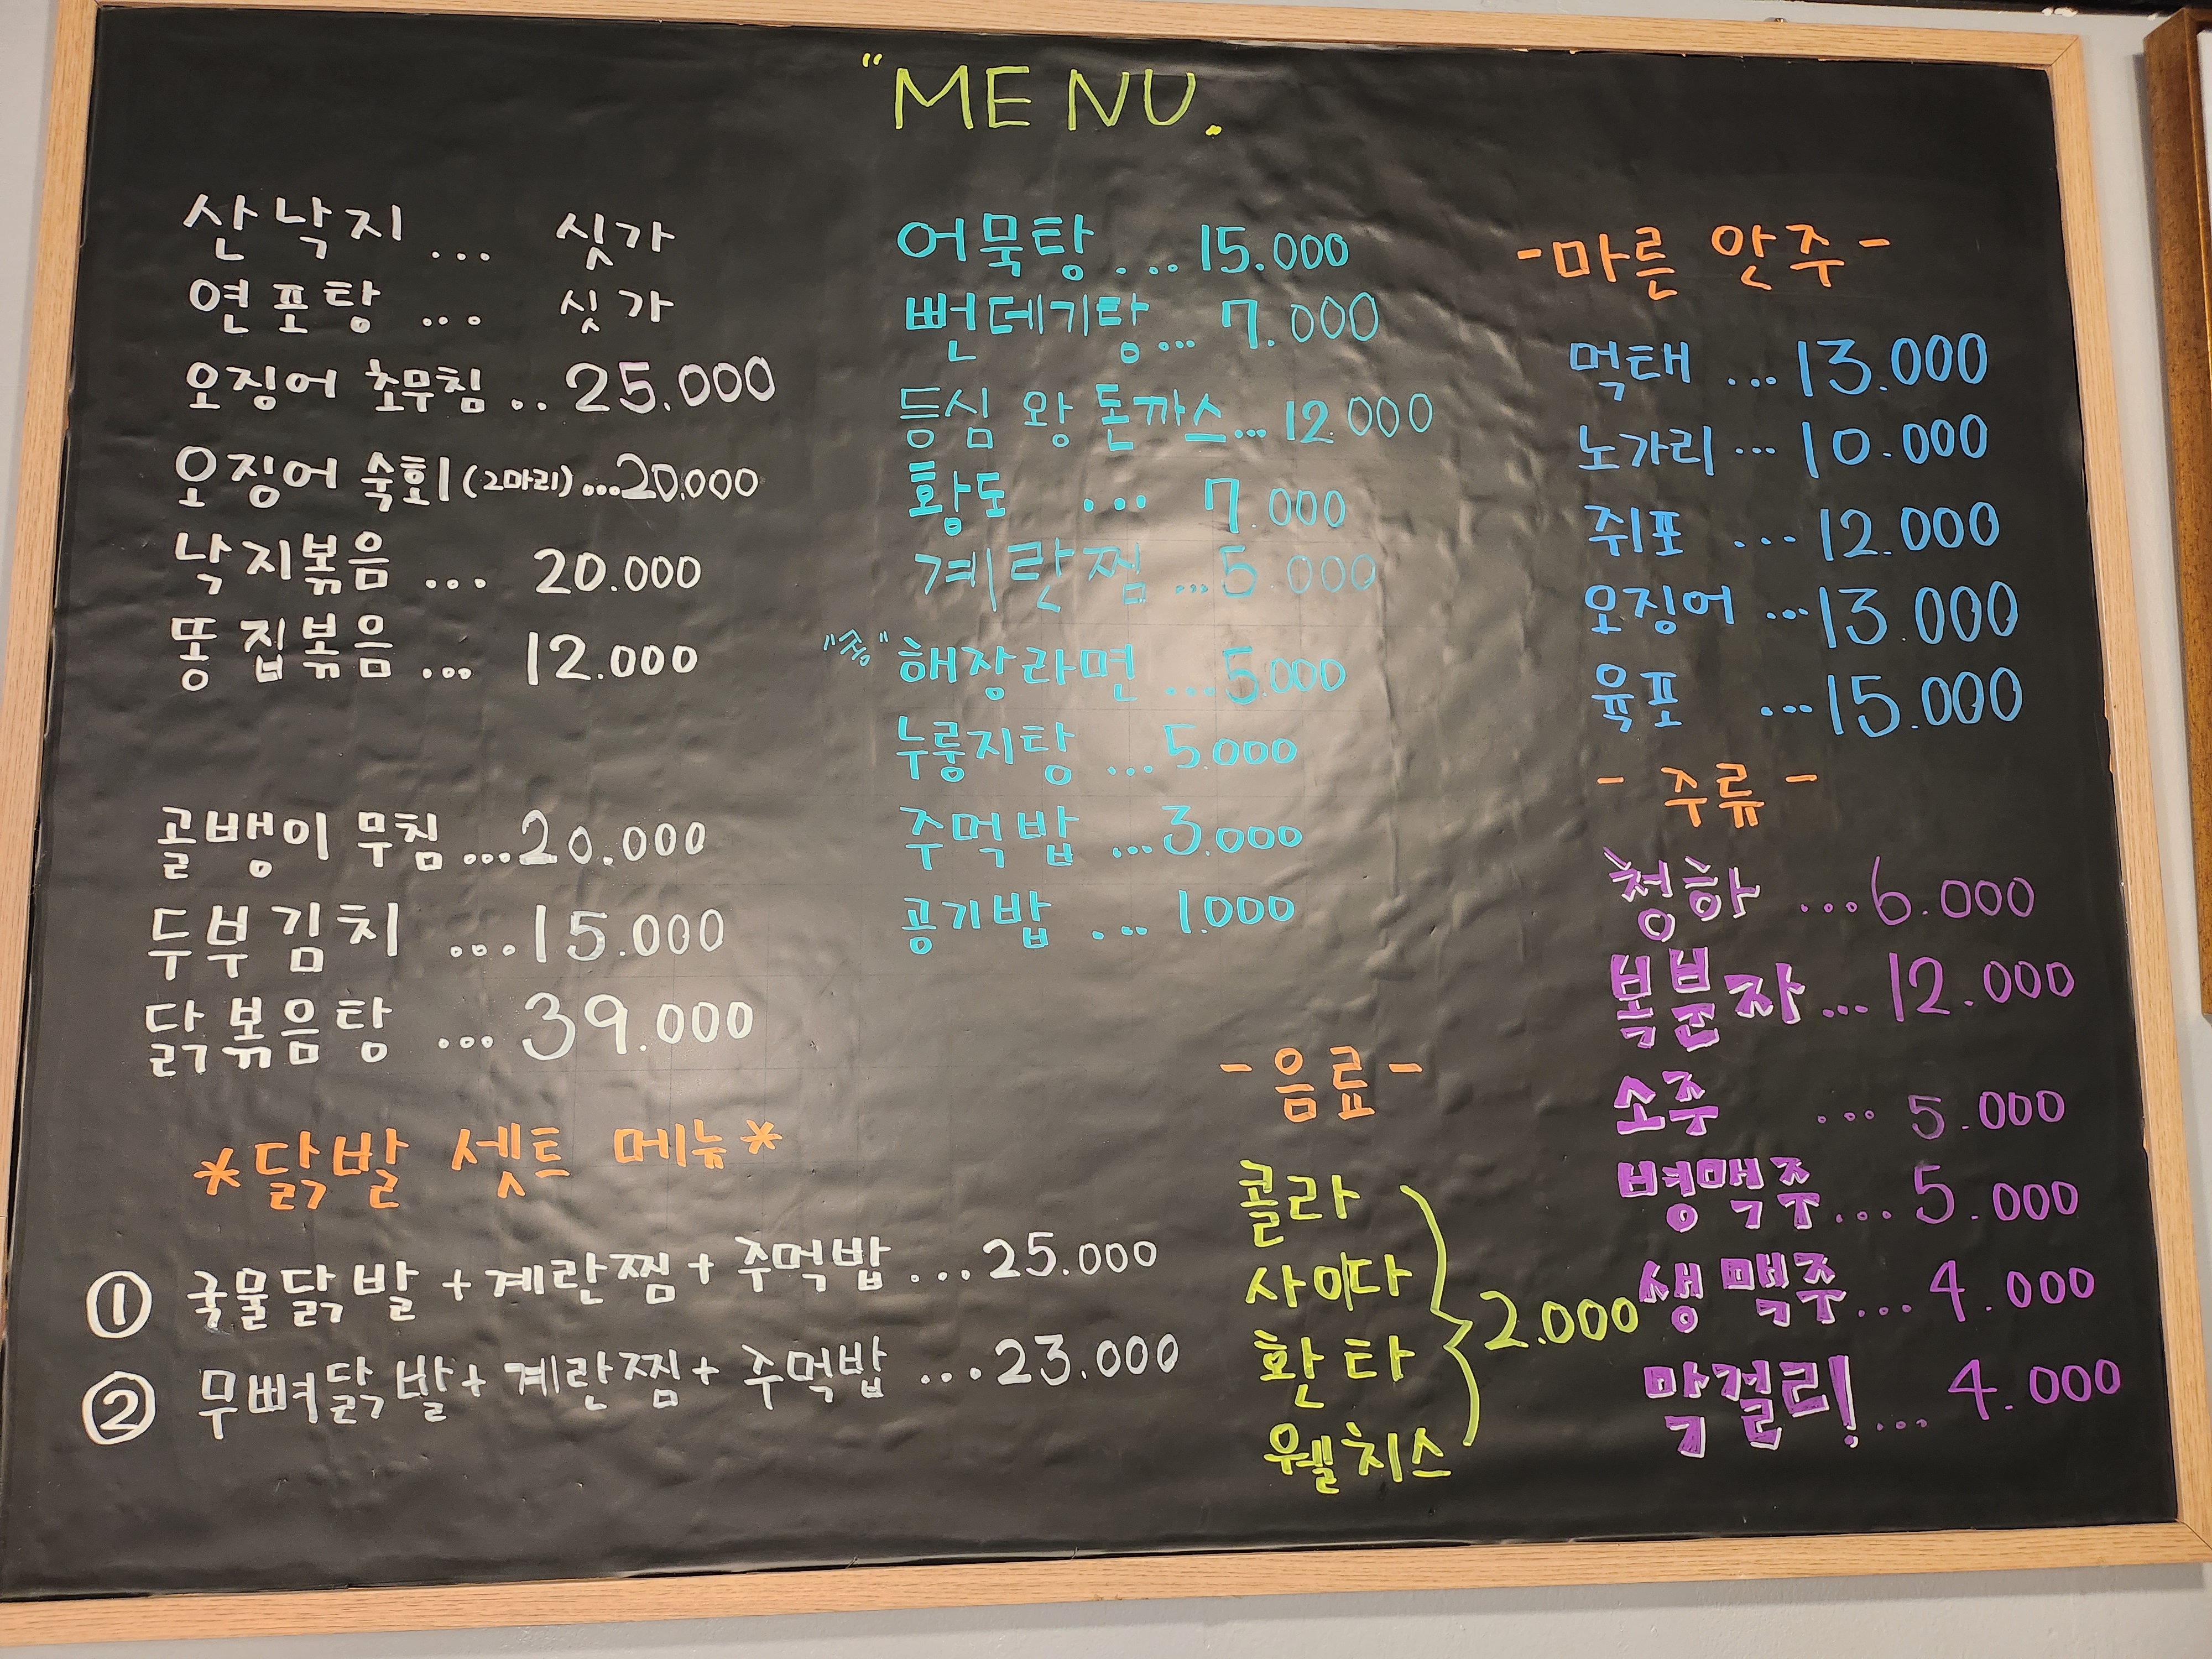 "MENU.
산낙지 ... 싯가
연포탕 ... 싯가
오징어 초무침 .. 25.000
오징어 숙회(2마리)...20.000
낙지볶음 ... 20.000
똥집볶음 ... 12.000
골뱅이 무침 ...20.000
두부김치 ...15.000
닭볶음탕 ... 39.000
*닭발 셋트 메뉴*
① 국물닭발 + 계란찜 + 주먹밥 ...25.000
② 무뼈닭발 + 계란찜 + 주먹밥 ...23.000
어묵탕 ...15.000
뻔데기탕... 7.000
등심 왕 돈까스... 12.000
황도 ... 7.000
계란찜 ...5.000
해장라면 ...5.000
누룽지탕 ...5.000
주먹밥 ...3.000
공기밥 ... 1.000
-음료-
콜라
사이다
환타
웰치스
2.000
-마른 안주-
먹태 ...13.000
노가리 ...10.000
쥐포 ...12.000
오징어 ...13.000
육포 ...15.000
- 주류 -
청하 ...6.000
복분자 ...12.000
소주 ... 5.000
병맥주... 5.000
생맥주... 4.000
막걸리!... 4.000